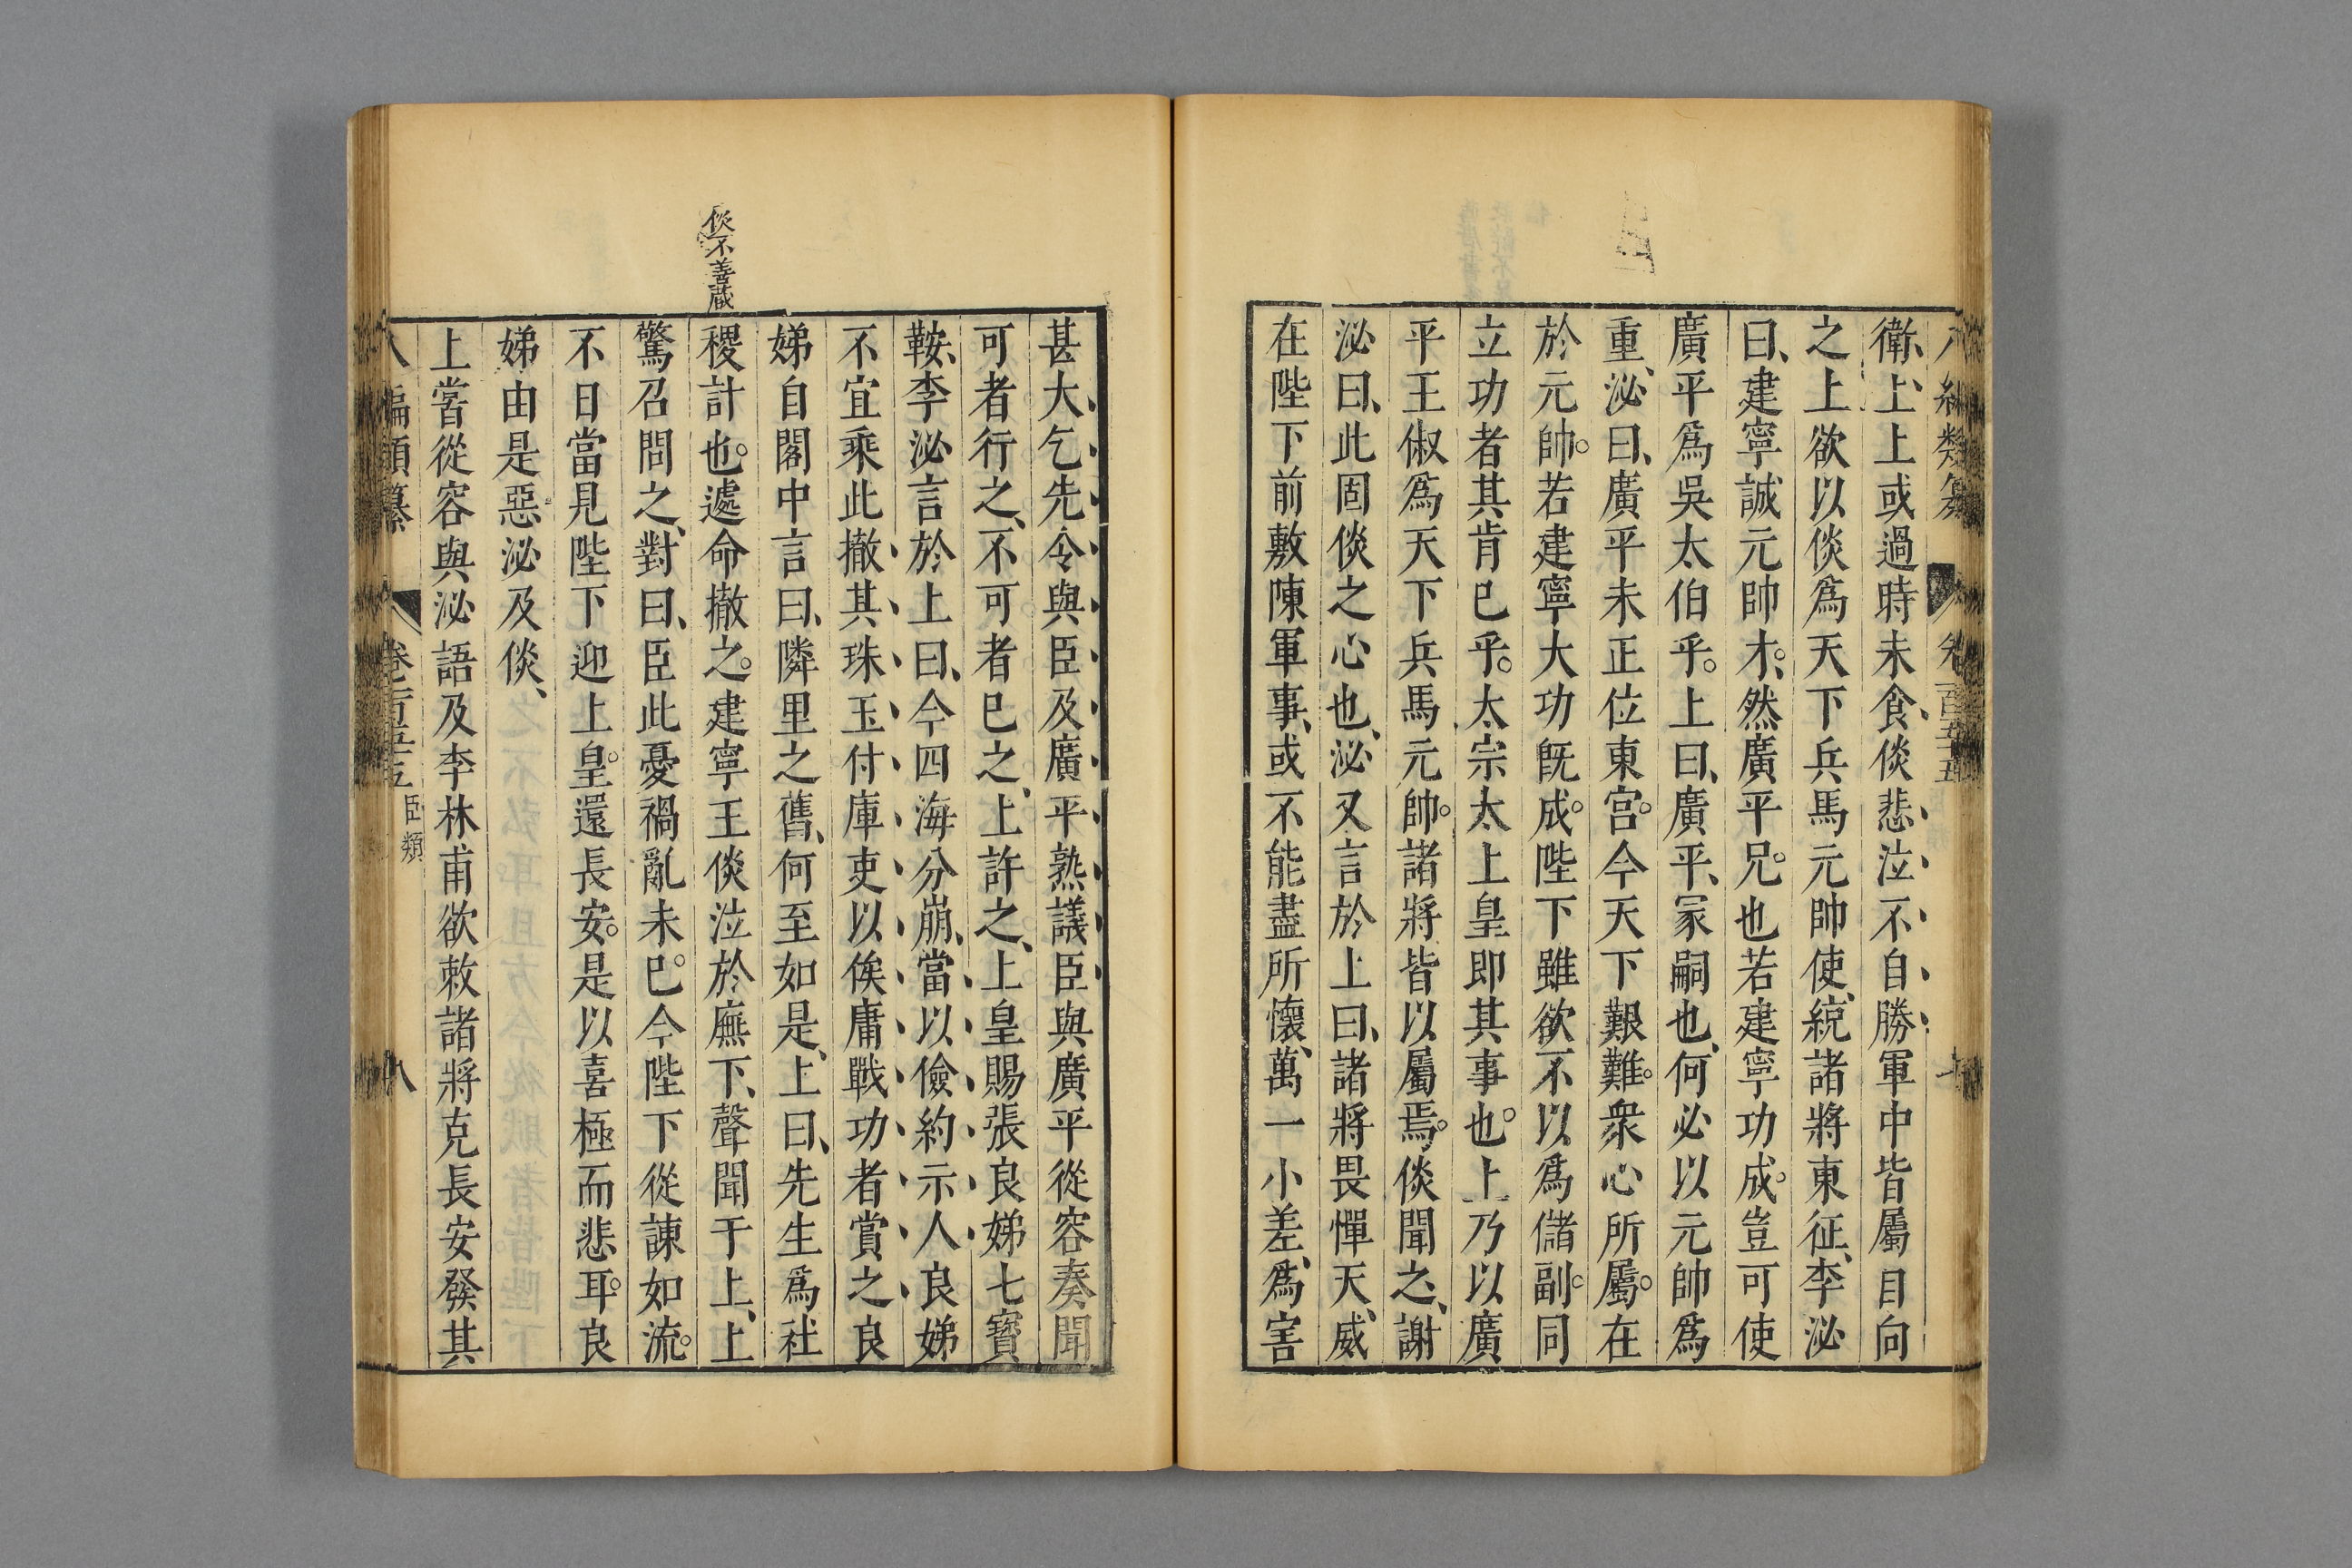 八編類纂 卷一百五十五 七
衛上上或過時未食倓悲泣不自勝軍中皆屬目向
之上欲以倓爲天下兵馬元帥使統諸將東征李泌
曰建寧誠元帥才然廣平兄也若建寧功成豈可使
廣平爲吳太伯乎上曰廣平冢嗣也何必以元帥爲
重泌曰廣平未正位東宮今天下艱難衆心所屬在
於元帥若建寧大功旣成陛下雖欲不以爲儲副同
立功者其肯已乎太宗太上皇卽其事也上乃以廣
平王俶爲天下兵馬元帥諸將皆以屬焉倓聞之謝
泌曰此固倓之心也泌又言於上曰諸將畏憚天威
在陛下前敷陳軍事或不能盡所懷萬一小差爲害
甚大乞先令與臣及廣平熟議臣與廣平從容奏聞
可者行之不可者已之上許之上皇賜張良娣七寶
鞍李泌言於上曰今四海分崩當以儉約示人良娣
不宜乘此撤其珠玉付庫吏以俟庸戰功者賞之良
娣自閣中言曰隣里之舊何至如是上曰先生爲社
倓不善蔵
稷計也遽命撤之建寧王倓泣於廡下聲聞于上上
驚召問之對曰臣此憂禍亂未已今陛下從諫如流
不日當見陛下迎上皇還長安是以喜極而悲耳良
娣由是惡泌及倓
上嘗從容與泌語及李林甫欲敕諸將克長安發其
八編類纂 卷一百五十五 臣類 八